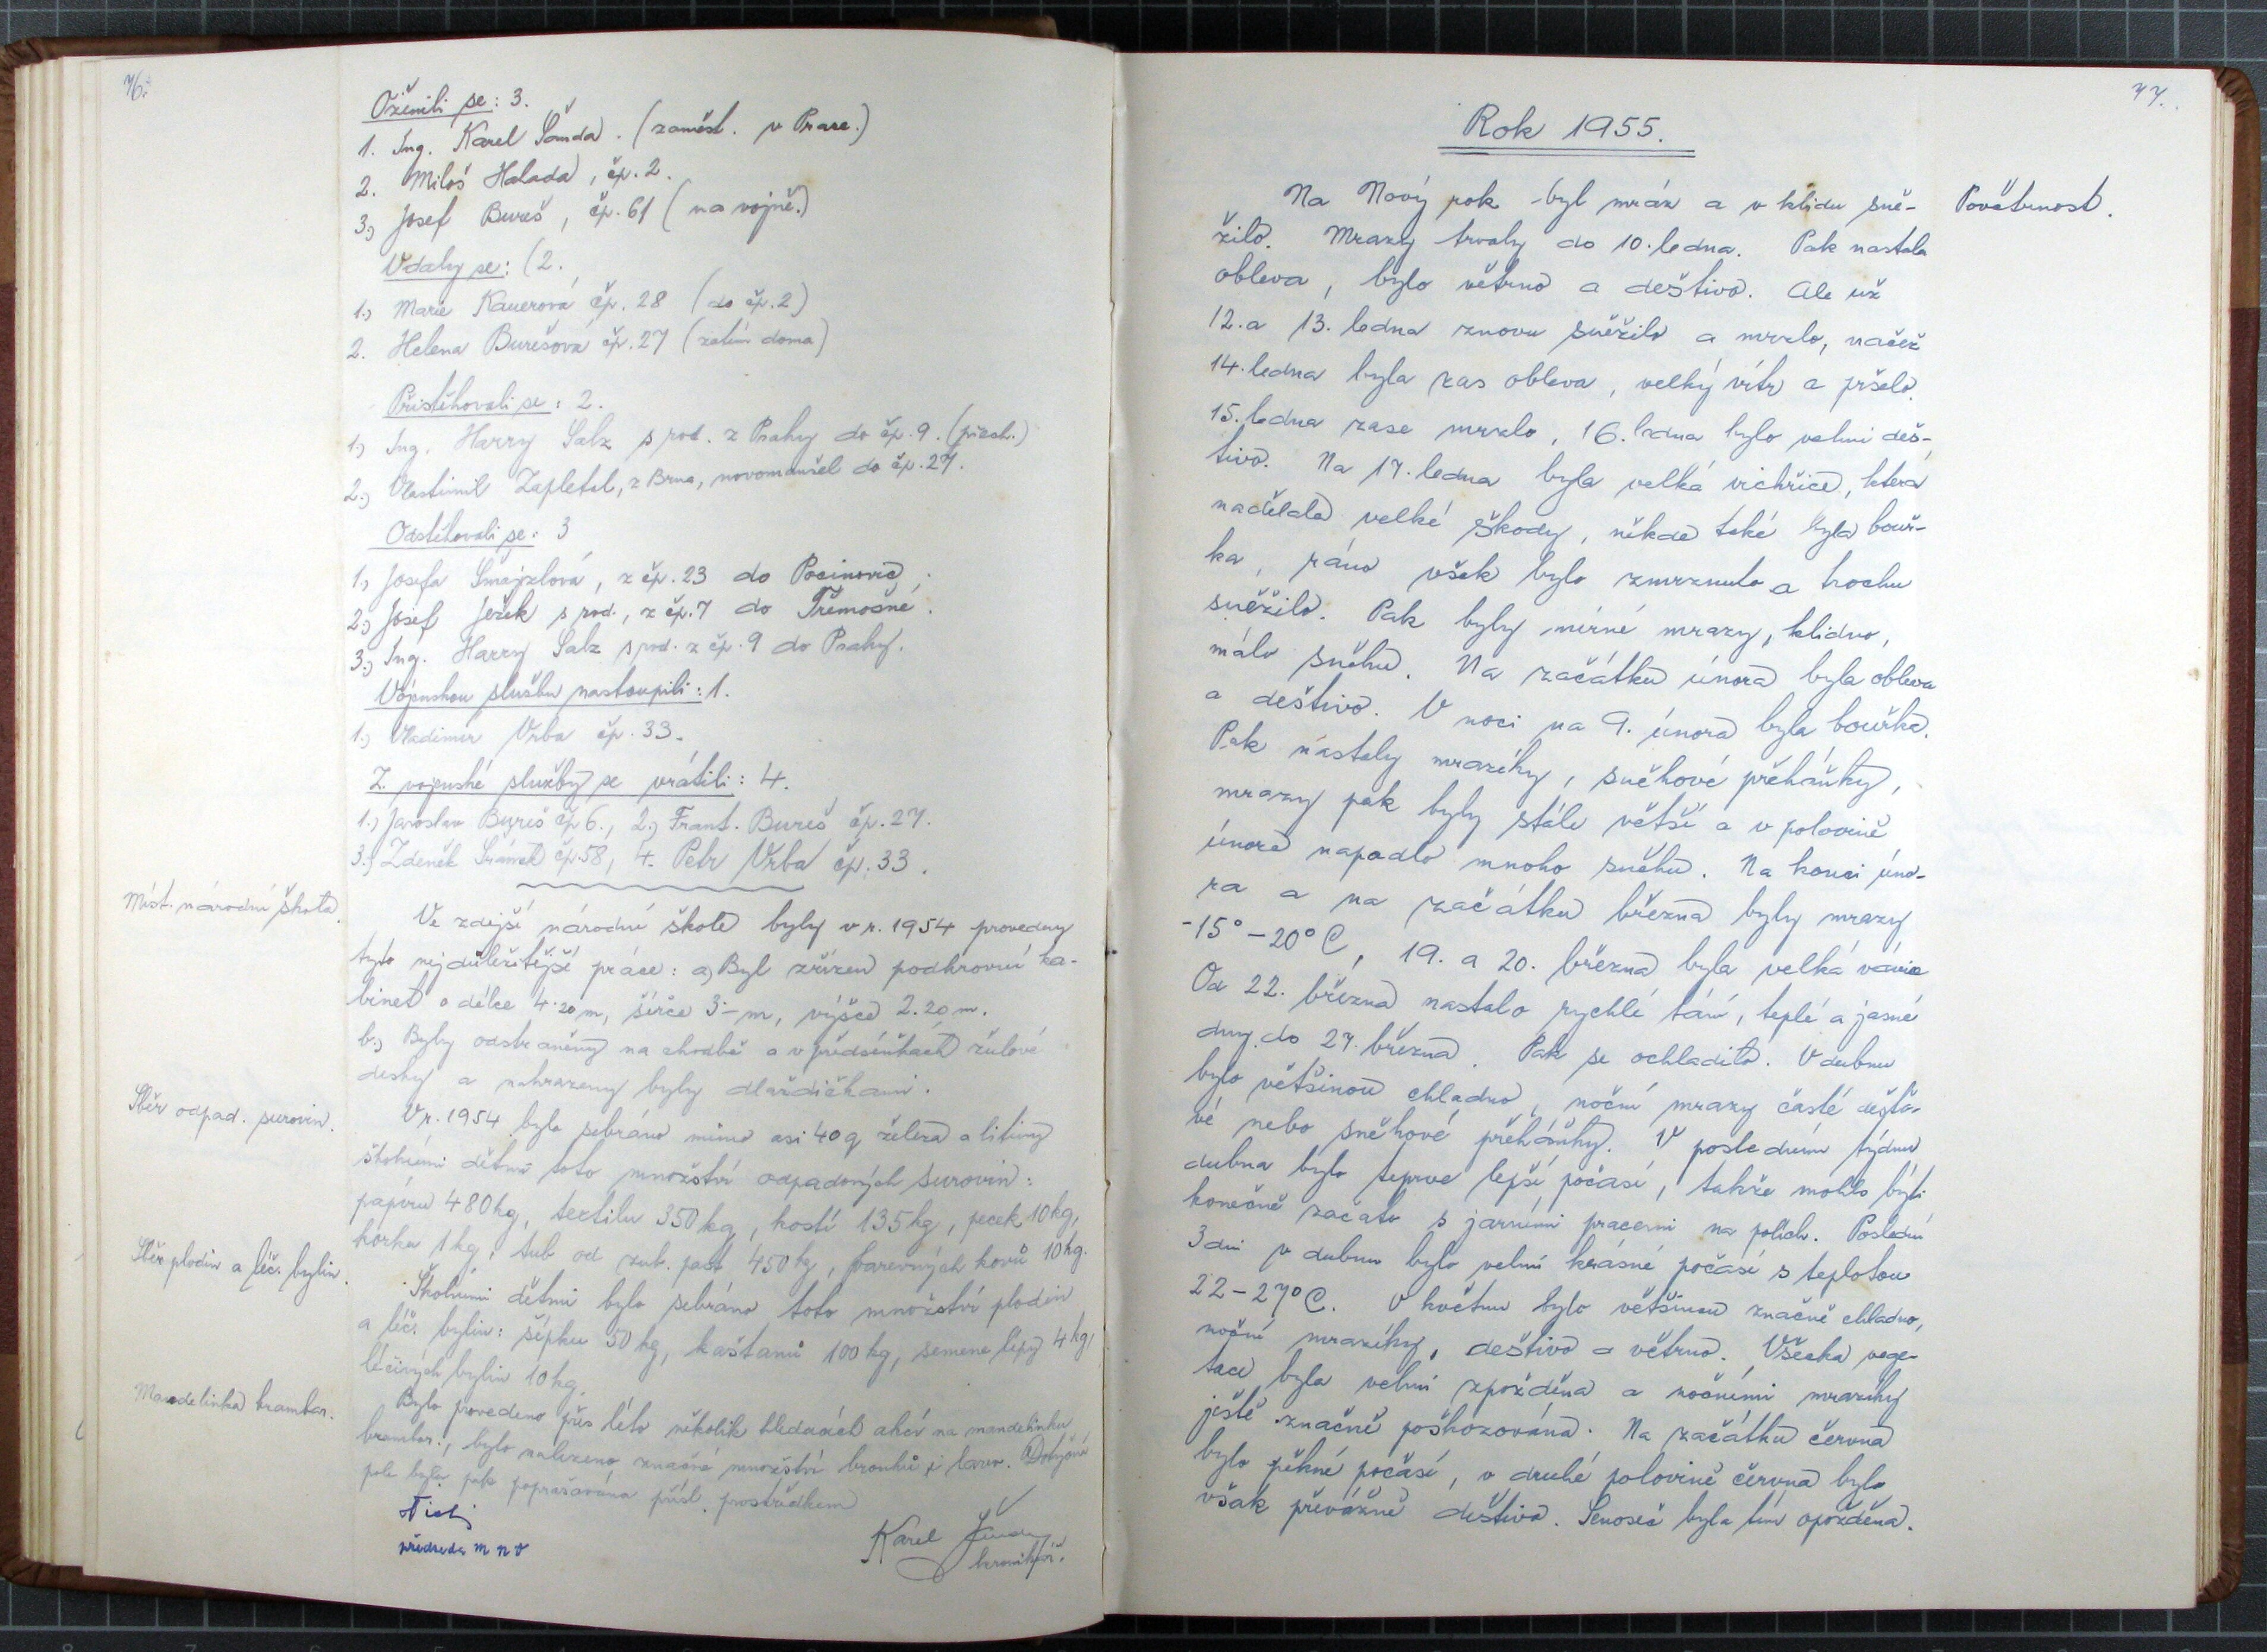 76.
Oženili se: 3.
1. Ing. Karel Šmíd. (zaměst. v Praze.)
2. Miloš Halada, čp. 2.
3.) Josef Bureš, čp. 61 (na vojně.)
Vdaly se: (2.
1.) Marie Kauerová čp. 28 (do čp. 2)
2. Helena Burešová čp. 27 (zatím doma)
Přistěhovali se: 2.
1.) Ing. Harry Salz s rod. z Prahy do čp. 9. (přech.)
2.) Vlastimil Zapletal, z Brna, novomanžel do čp. 27.
Odstěhovali se: 3
1.) Josefa Šmajzlová, z čp. 23 do Pocinovic,
2.) Josef Ježek s rod., z čp. 7 do Třemošné.
3.) Ing. Harry Salz s rod. z čp. 9 do Prahy.
Vojenskou službu nastoupili: 1.
1.) Vladimír Vrba čp. 33.
Z vojenské služby se vrátili: 4.
1.) Jaroslav Bureš čp 6., 2.) Frant. Bureš čp. 27.
3.) Zdeněk čp. 58, 4. Petr Vrba čp. 33.
Míst. národní škola.
Ve zdejší národní škole byly v r. 1954 provedeny
tyto nejdůležitější práce: a) Byl zřízen podkrovní ka-
binet o délce 4.20 m, šířce 3.- m, výšce 2.20 m.
b.) Byly odstraněny na chodbě a v předsíňkách žulové
desky a nahrazeny byly dlaždičkami.
Sběr odpad. surovin.
V r. 1954 bylo sebráno mimo asi 40 q železa a litiny
školními dětmi toto množství odpadových surovin:
papíru 480 kg, textilu 350 kg, kostí 135 kg, pecek 10 kg,
korku 1 kg, tub od zub. past 450 kg, barevných kovů 10 kg.
Sběr plodin a léč. bylin.
Školními dětmi bylo sebráno toto množství plodin
a léč. bylin: šípku 50 kg, kaštanů 100 kg, semene lípy 4 kg,
léčivých bylin 10 kg.
Mandelinka brambor.
Bylo provedeno přes léto několik hledacích akcí na mandelinku
brambor., bylo nalezeno značné množství brouků i larev. Dotyčná
pole byla pak poprašována přísl. prostředkem
předseda M N V
Karel
kronikář.
77.
Rok 1955.
Povětrnost.
Na Nový rok byl mráz a v klidu sně-
žilo. Mrazy trvaly do 10. ledna. Pak nastala
obleva, bylo větrno a deštivo. Ale už
12. a 13. ledna znovu sněžilo a mrzlo, načež
14. ledna byla zas obleva, velký vítr a pršelo.
15. ledna zase mrzlo, 16. ledna bylo velmi deš-
tivo. Na 17. ledna byla velká vichřice, která
nadělala velké škody, někde také byla bouř-
ka, ráno však bylo zmrznuto a trochu
sněžilo. Pak byly mírné mrazy, klidno,
málo sněhu. Na začátku února byla obleva
a deštivo. V noci na 9. února byla bouřka.
Pak nastaly mrazíky, sněhové přeháňky,
mrazy pak byly stále větší a v polovině
února napadlo mnoho sněhu. Na konci úno-
ra a na začátku března byly mrazy
-15° -20° C, 19. a 20. března byla velká vánice
Od 22. března nastalo rychlé tání, teplé a jasné
dny do 27. března. Pak se ochladilo. V dubnu
bylo většinou chladno, noční mrazy časté dešťo-
vé nebo sněhové přeháňky. V posledním týdnu
dubna bylo teprve lepší počasí, takže mohlo býti
konečně začato s jarními pracemi na polích. Poslední
3 dni v dubnu bylo velmi krásné počasí s teplotou
22 - 27° C. V květnu bylo většinou značně chladno,
noční mrazíky, deštivo a větrno. Všecka vege-
tace byla velmi zpožděna a nočními mrazíky
ještě značně poškozována. Na začátku června
bylo pěkné počasí, v druhé polovině června bylo
však převážně deštivo. Senoseč byla tím opožděna.